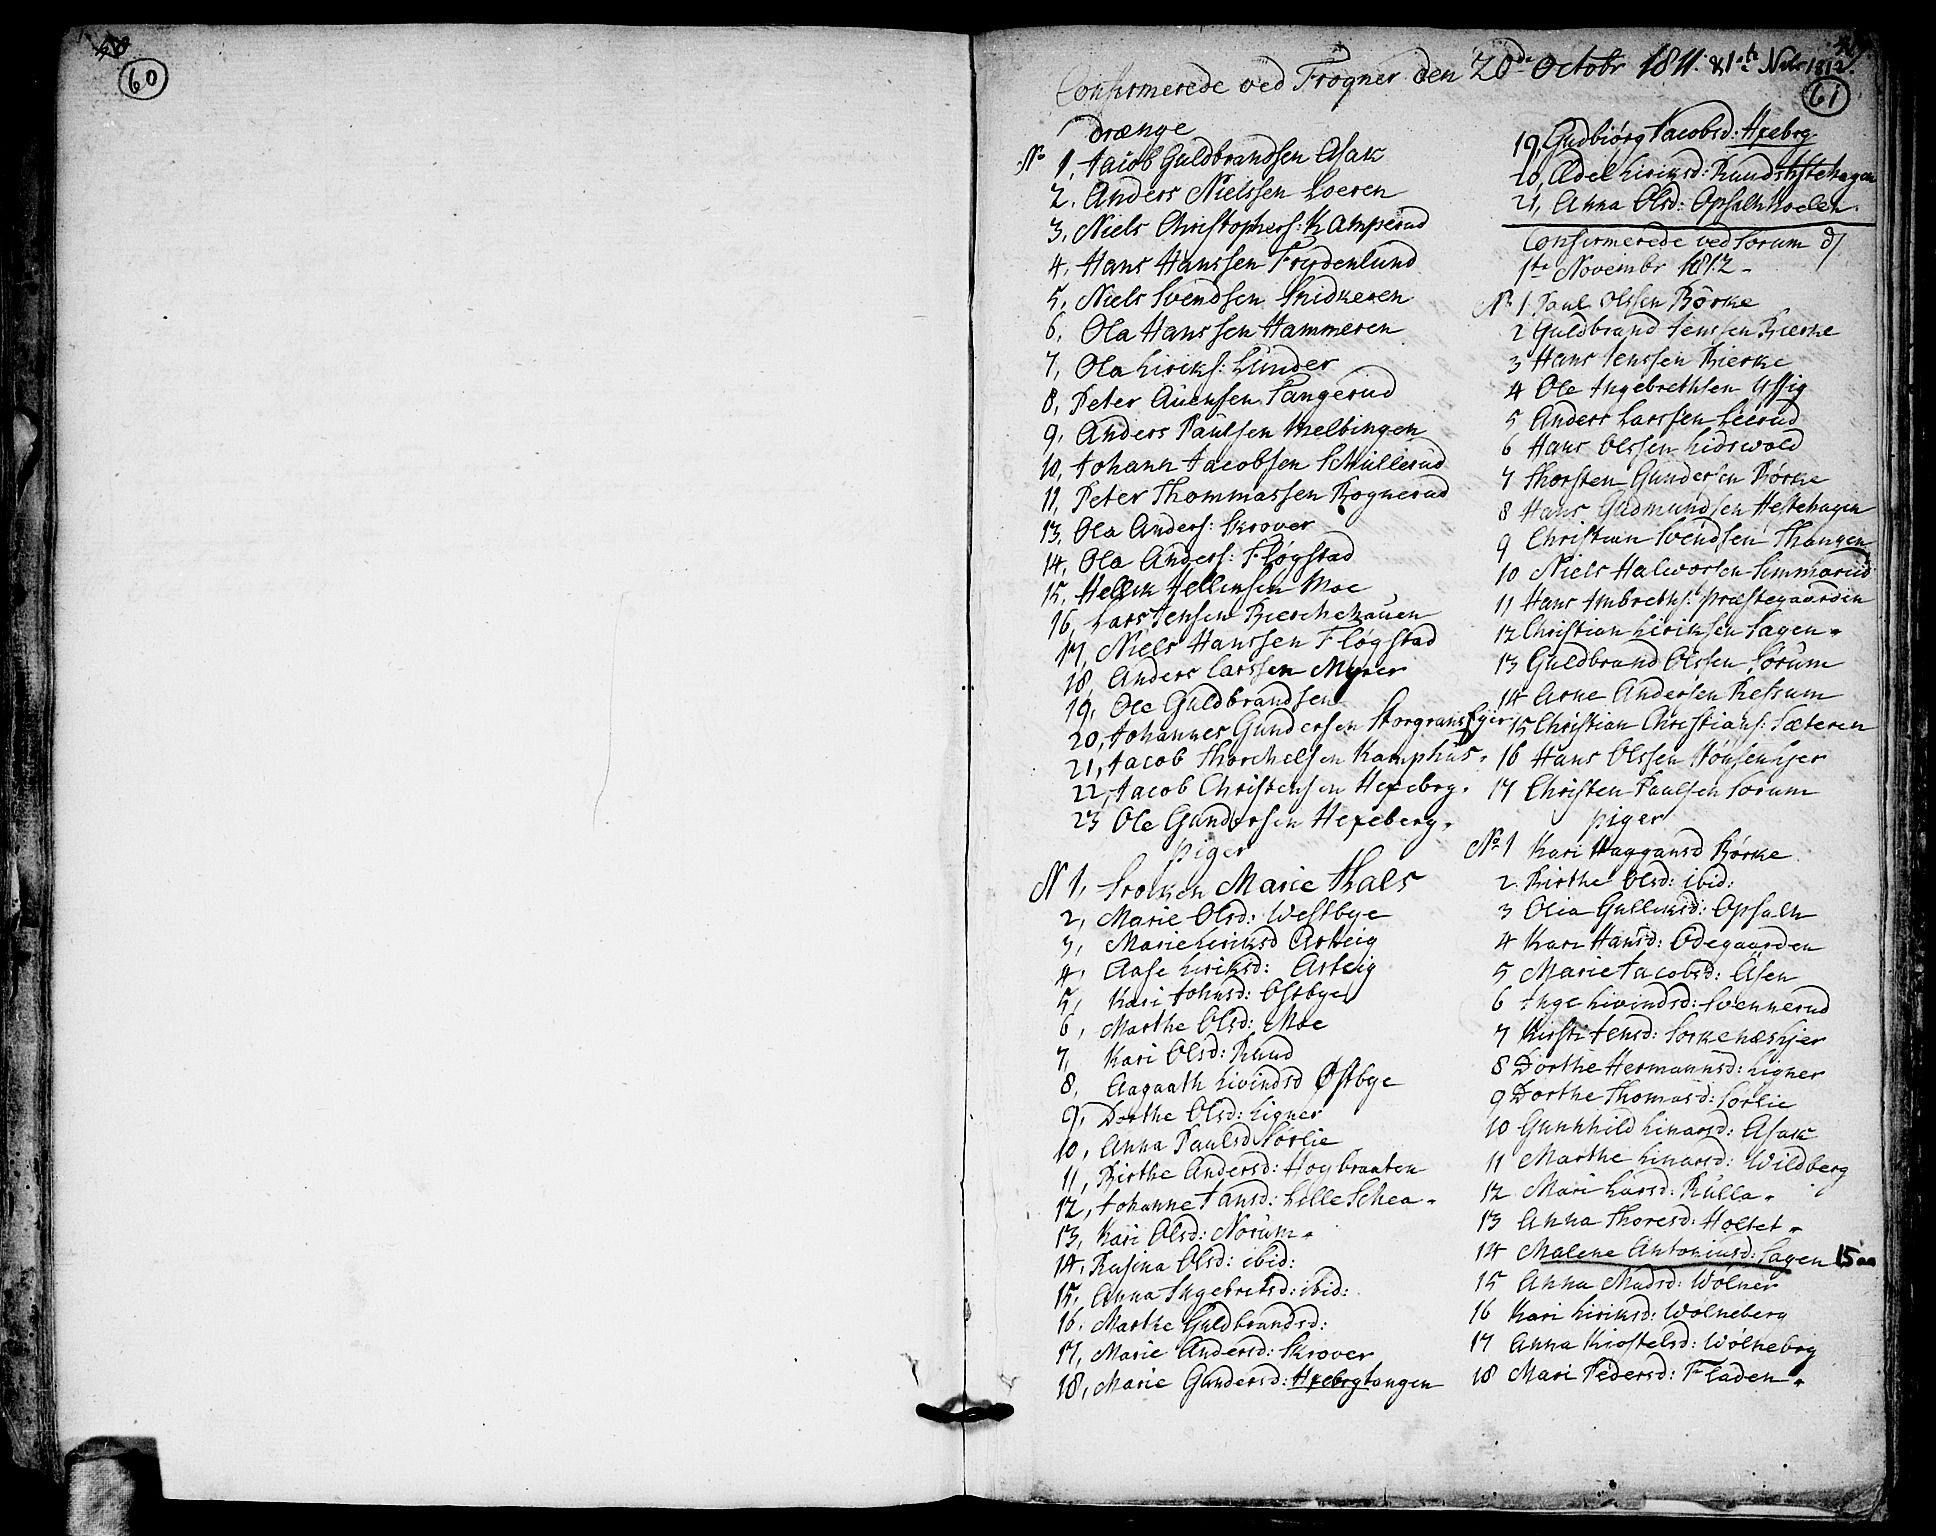 60
61
Confirmerede ved Frogner den 20de Octobr 1811. & 1te Nvbr 1812.
Drænge
No 1, Jacob Guldbrandsen Asak
2. Anders Nielssen Loeren
3, Niels Christophers: Kamperud
4, Hans Hanssen Frydenlund
5, Niels Svendsen Snidkeren
6, Ola Hanssen Hammeren
7, Ola Eiriks: Lunder
8, Peter Auensen Tangerud
9, Anders Paulsen Melbingen
10, Johann Jacobsen Schullerud
11, Peter Thommassen Rognerud
13, Ola Anders: Skrover
14, Ola Anders: Fløgstad
15, Hellik Hellinsen Moe
16, Lars Jensen Bierchehauen
17, Niels Hanssen Fløgstad
18 Anders Larssen Myrer
19, Ole Guldbrandsen
20, Johannes Gundersen Storgranskjer
21, Jacob Thorchelsen Kamphus.
22, Jacob Christensen Hexebrg.
23 Ole Gundersen Hexeberg.
piger
N 1, Frøiken Marie Thals
2, Marie Olsd: Westbye
3, Marie Eiriksd Asteig
4, Aase Eiriksd: Asteig
5, Kari Johnsd: Østbye
6, Marthe Olsd: Moe
7, Kari Olsd: Ruud
8, Aagaath Eivindsd Østbye
9, Dorthe Olsd: Ligner
10, Anna Paulsd Sørlie
11, Birthe Andersd: Høybraaten
12, Johanne Jansd: Lille Schea.
13, Kari Olsd: Norum.
14, Rusina Olsd: ibid:
15, Anna Ingebretsd: ibid:
16. Marthe Guldbrandsd:
17, Marie Andersd: Skrover
18, Marie Gundersd: Hxebrgtangen
19 Gudbiørg Jacobsd: Hxebrg
20, Ædel Eiriksd: Ruudshstehagen
21, Anna Olsd: Opsalhhoelen.
Confirmerede ved Sorum d
1te Novembr 1812.
No 1. Paul Olssen Børke
2 Guldbrand Jenssen Bierke
3 Hans Jenssen Bierke
4 Ole Ingebrethsen Yssig
5 Anders Larssen Leerud
6 Hans Olssen Eidswold
7 Thorsten Gundersen Børke
8 Hans Gudmundsen Hestehagen
9 Christian Svendsen Thangen
10 Niels Halworsen Simmarud
11 Hans Imbreths: Præstegaarden
12 Christian Eiriksen Sagen.
13 Guldbrand Olssen Sørum
14 Arne Andersen Refsum
15 Christian Christians: Sæteren
16 Hans Olssen Tønsenhjer
17 Christen Paulsen Sorum
piger
No 1 Kari Haagansd Børke
2. Birthe Olsd: ibid:
3 Olia Gulliksd: Opsalh
4 Kari Hansd: Ødegaarden
5 Marie Jacobsd: Åsen
6 Inge Eivindsd: Svennerud
7 Kirsti Jensd: Sorkenæshjer
8 Dorthe Hermannsd: Ligner
9 Dorthe Thomasd: Sorlie
10 Gunhhild Einarsd: Asak
11 Marthe Einarsd: Wildberg
12 Mari Larsd: Rulla.
13 Anna Thoresd: Holtet.
14 Malene Antoniusd: Sagen 15 aa
15 Anna Madsd: Wølner
16 Kari Eiriksd: Wolneberg
17 Anna Kiostelsd: Wølnebrg
18 Mari Pedersd: Fladen.